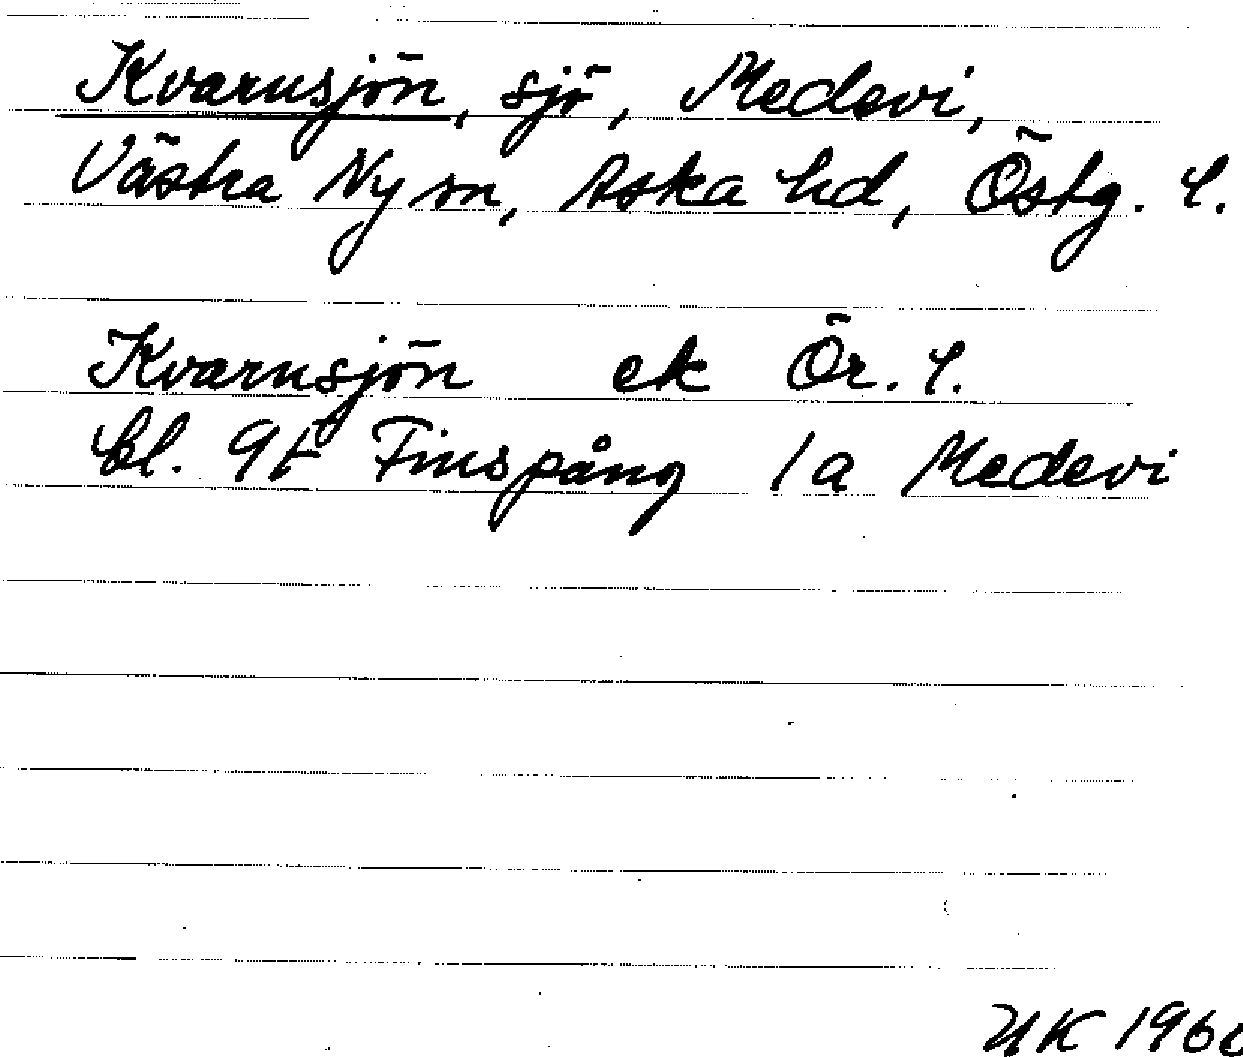 Kvarnsjön, sjö, Medevi,
Västra Ny sn, Aska hd, Östg. l.
Kvarnsjön ek Ör. l.
bl. 9F Finspång 1a Medevi
UK 1960